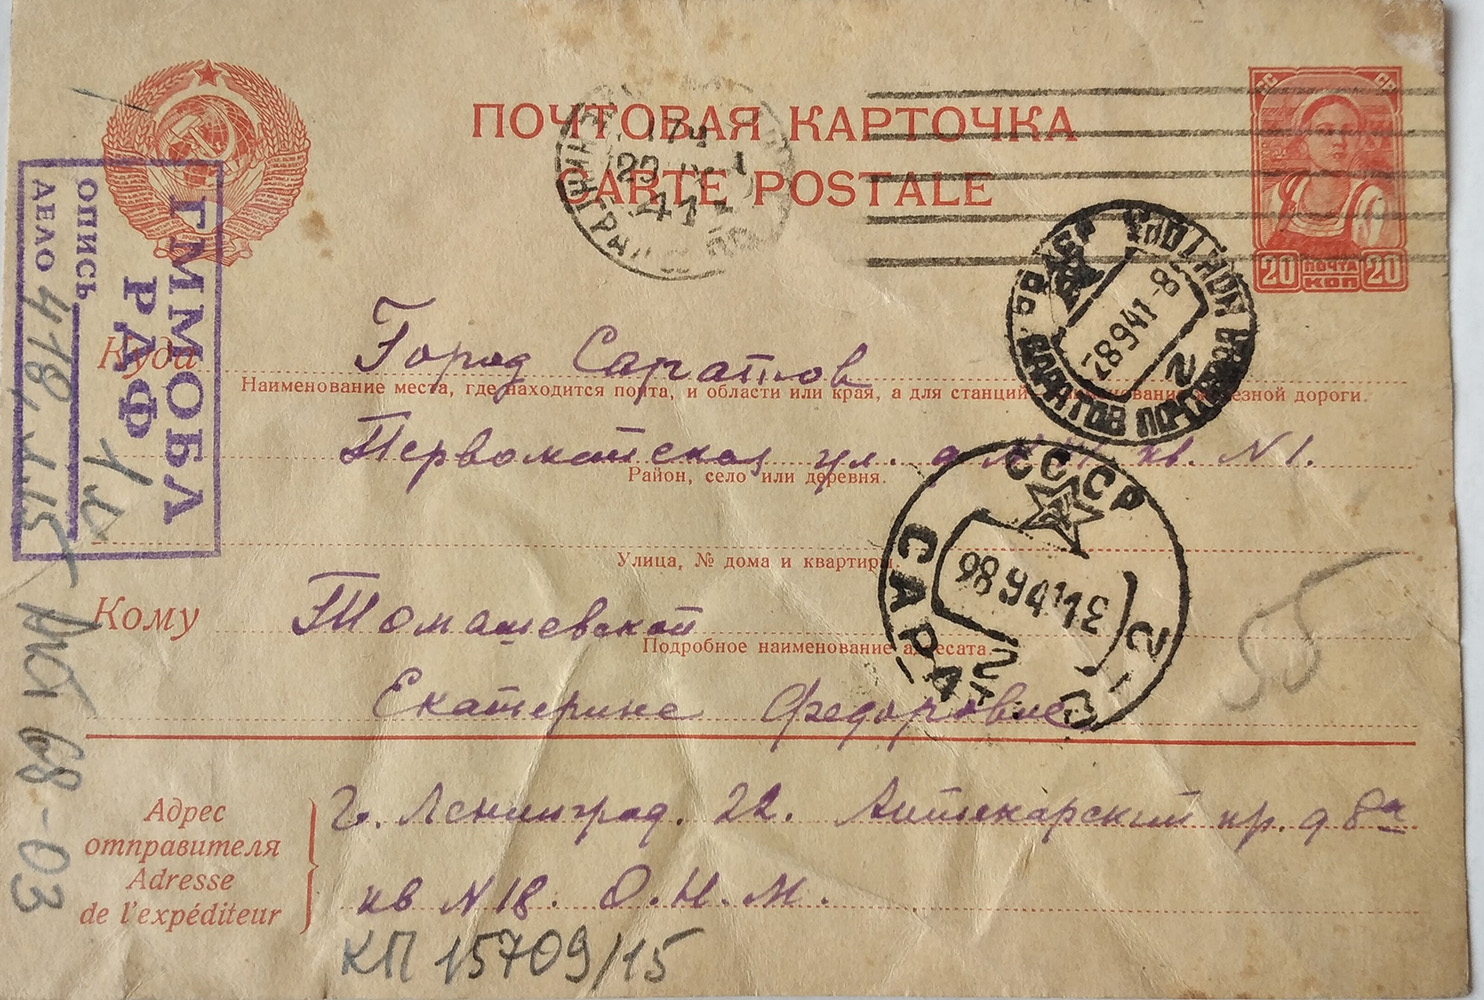 ПОЧТОВАЯ КАРТОЧКА
CARTE POSTALE
20 ПОЧТА КОП 20
ГММОБА
РДФ
ОПИСЬ
ДЕЛО 418
Куда
Город Саратов
Наименование места, где находится почта, и области или края, а для станций железной дороги.
Первомайская ул. д кв. N1.
Район, село или деревня.
Улица, № дома и квартиры.
Кому
Томашевской
Подробное наименование адресата.
Екатерине Федоровне
Адрес
отправителя
Adresse
de l'expéditeur
г. Ленинград. 22. Аптекарский пр. д 8а
кв N 18. О. Н. М.
КП 15709/15
Акт 68-03
55
28 9 41 - 8
САРАТОВ ПОЧТАМТ
2
СССР
САРАТОВ